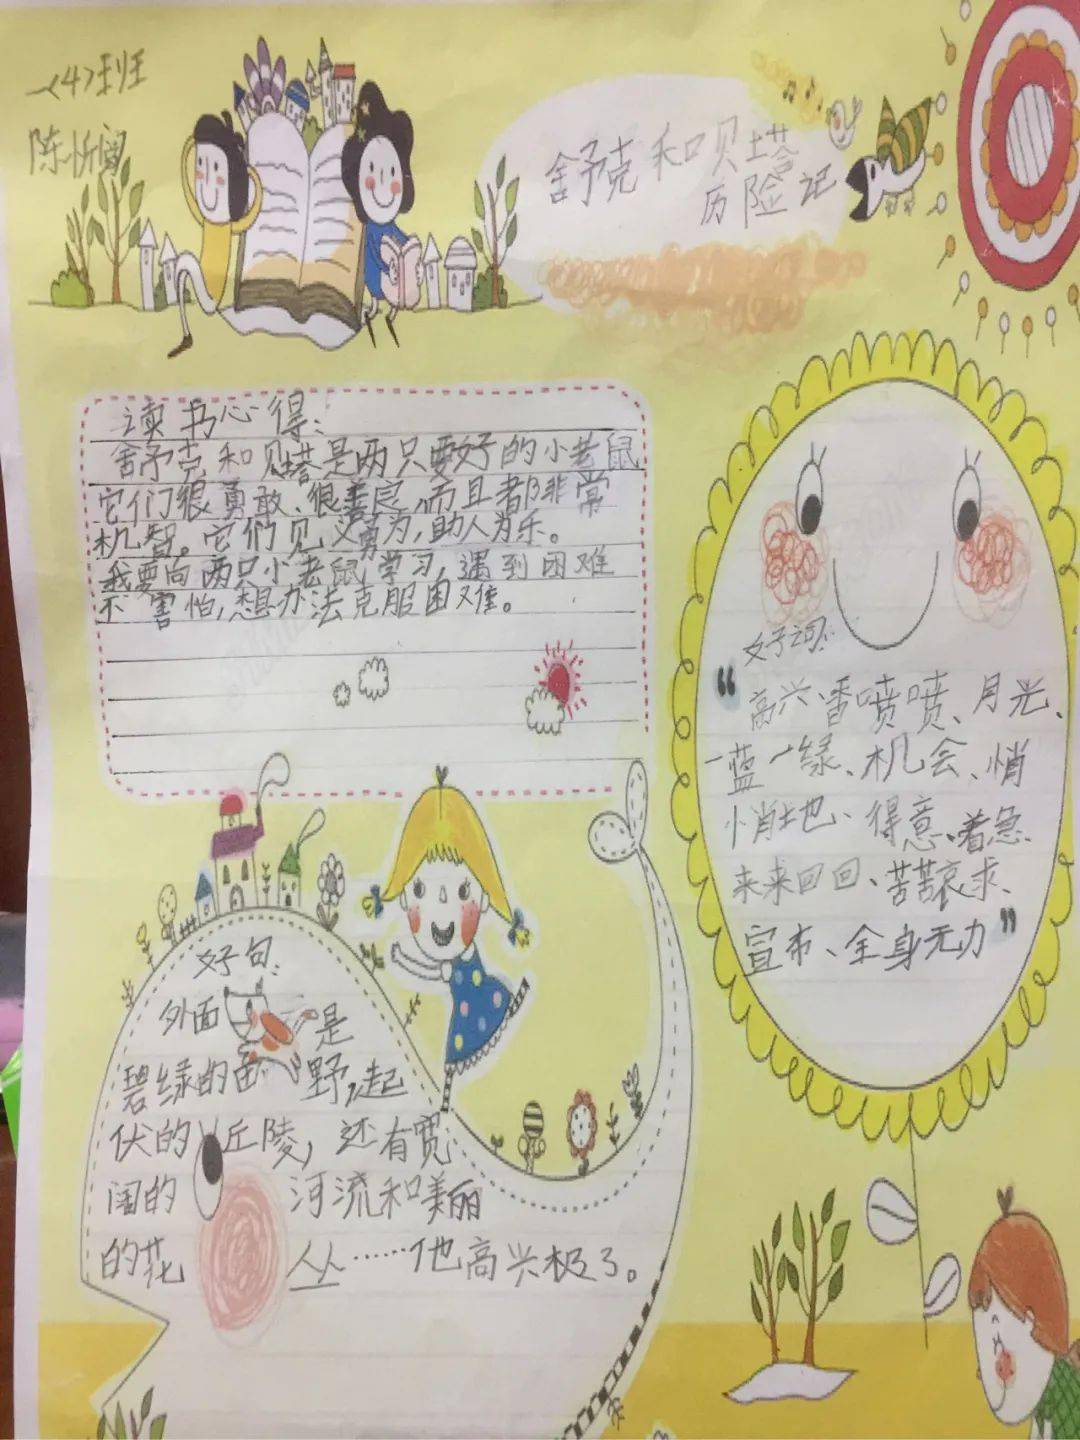 一(4)班
陈忻
舒克和贝塔
历险记
读书心得:
舍予克和贝塔是两只要好的小老鼠
它们很勇敢、很善良,而且都非常
机智。它们见义勇为,助人为乐。
我要向两只小老鼠学习,遇到困难
不害怕,想办法克服困难。
好词:
“高兴、香喷喷、月光、
一蓝一绿、机会、悄
悄地、得意、着急、
来来回回、苦苦哀求、
宣布、全身无力”
好句:
外面是
碧绿的田野,起
伏的丘陵,还有宽
阔的河流和美丽
的花丛……他高兴极了。